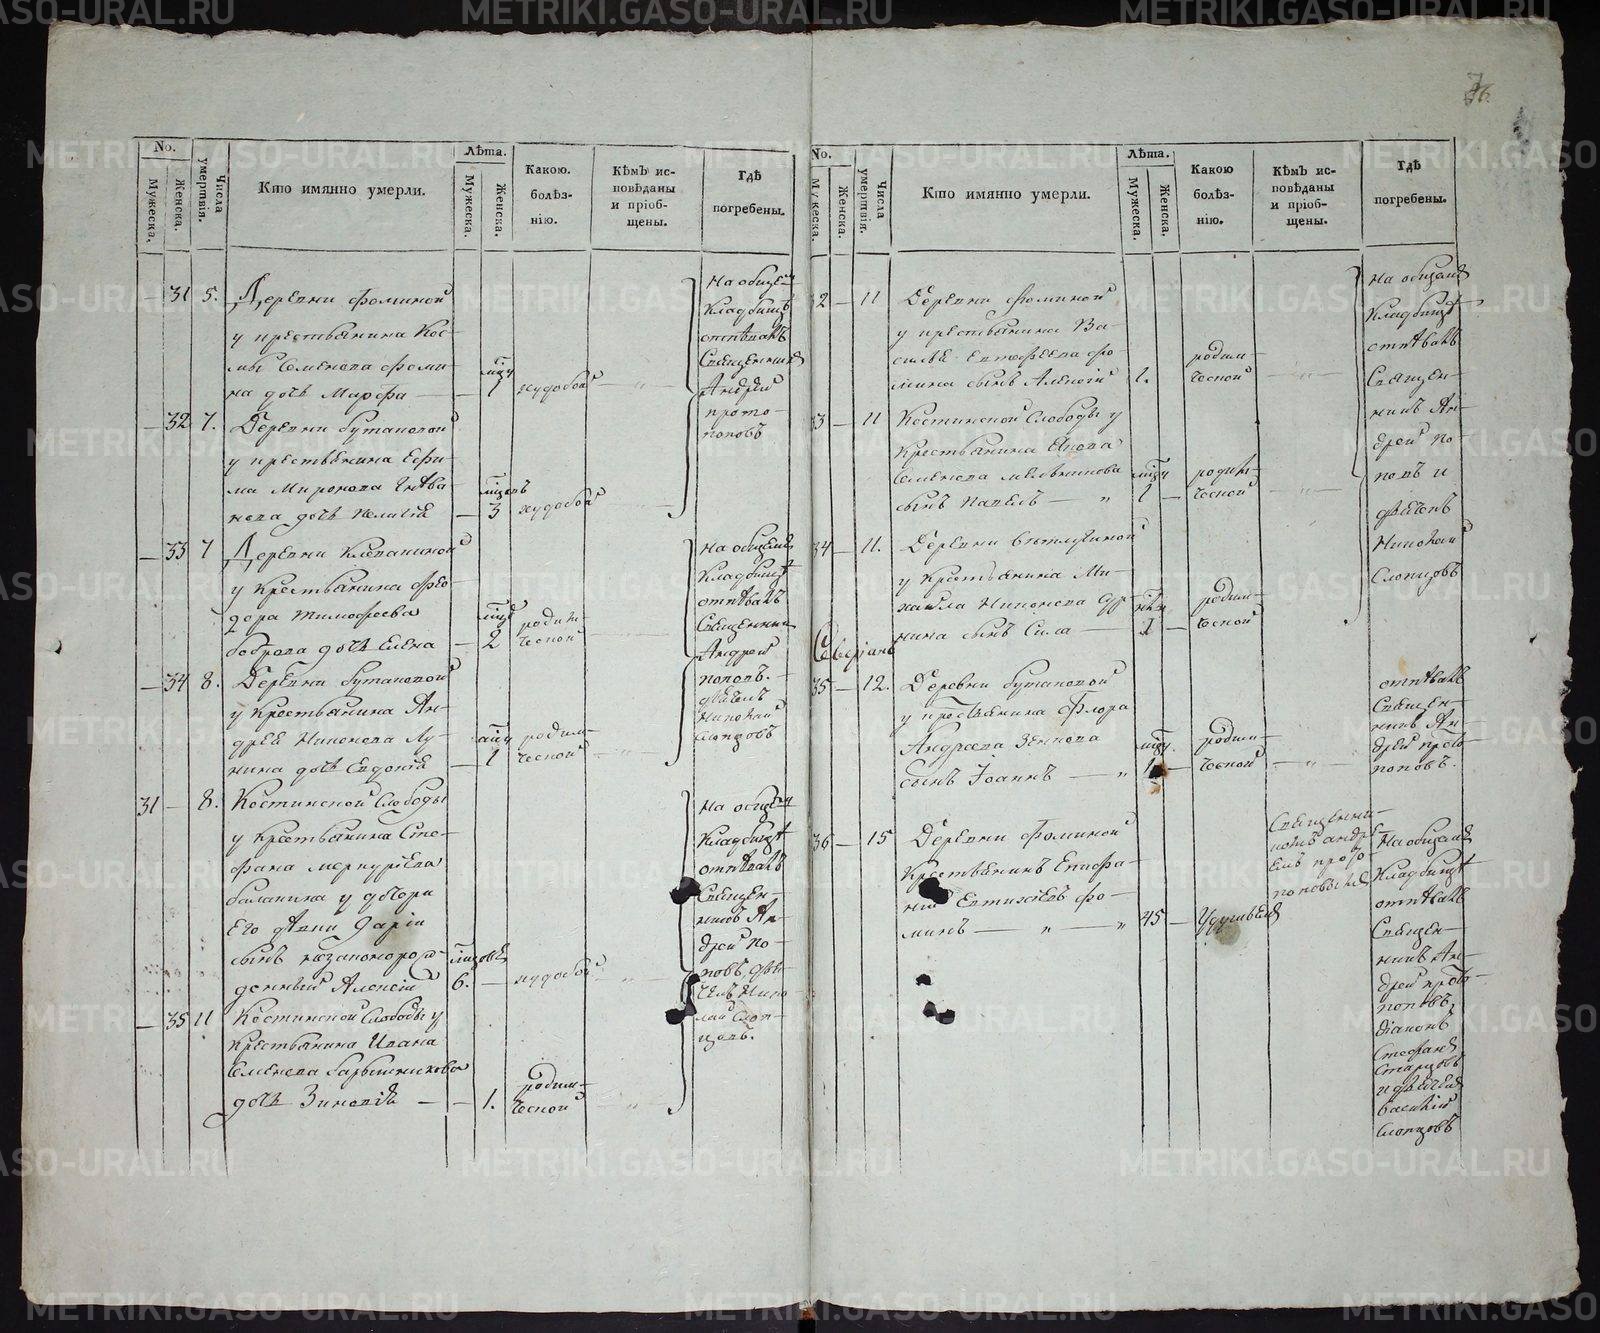 76
No.
Мужеска.
Женска.
Числа умертвія.
Кто имянно умерли.
Лѣта.
Мужеска.
Женска.
Какою. болѣз-нію.
Кѣмъ ис-
повѣданы
и пріоб-
щены.
Гдѣ
погребены.
31 5. Деревни Фоминой
у крестьянина Кос-
мы Семенова Фоми-
на дочь Марфа 1 худобой
На общемъ
Кладбищѣ
отпѣвалъ
Священникъ
Андрей
прото-
поповъ
32 7. Деревни Бутаковой
у крестьянина Ефи-
ма Миронова
нова дочь Пелагія 3 худобой
33 7 Деревни Клевакиной
у Крестьянина Фео-
дора Тимофеева
боброва дочь Елена 2 родим-
ческой
На общемъ
Кладбищѣ
отпѣвалъ
Священникъ
Андрей
поповъ.
дьячекъ
Николай
Слопцовъ
34 8. Деревни Бутаковой
у Крестьянина Ан-
дрея Никонова Лу-
нина дочь Евдокія 1 родим-
ческой
31 8. Костинской Слободы
у Крестьянина Сте-
фана Меркурьева
балакина у дочери
Его дѣвки Даріи
сынъ незаконорож-
денный Алексій 6. худобой
На общемъ
Кладбищѣ
отпѣвалъ
Священ-
никъ Ан-
дрей По-
повъ, дья-
чекъ Нико-
лай Слоп-
цовъ.
35 11 Костинской Слободы у
Крестьянина Ивана
Семенова Барышникова
дочь Зиновія 1. родим-
ческой
No.
Мужеска.
Женска.
Числа умертвія.
Кто имянно умерли.
Лѣта.
Мужеска.
Женска.
Какою
болѣз-
нію.
Кѣмъ ис-
повѣданы
и пріоб-
щены.
Гдѣ
погребены.
32 11 Деревни Фоминой
у крестьянина Ва-
силья Евтефеева Фо-
мина сынъ Алексій 1. родим-
ческой
На общемъ
Кладбищѣ
отпѣвалъ
Священ-
никъ Ан-
дрей По-
повъ и
дьячекъ
Николай
Слопцовъ
33 11 Костинской Слободы у
Крестьянина
Семенова мельникова
сынъ Павелъ 1 родим-
ческой
34 11. Деревни
у Крестьянина Ми-
хаила Никонова
нина сынъ Сила 1 родим-
ческой
Северіанъ
35 12. Деревни Бутаковой
у крестьянина Флора
Андреева Зенкова
сынъ Іоаннъ 1 родим-
ческой
отпѣвалъ
Священ-
никъ Ан-
дрей прото-
поповъ.
36 15 Деревни Фоминой
Крестьянинъ Епифа-
ній Евтихіевъ Фо-
минъ 45 Удушьемъ
Священни-
комъ Андре-
емъ прото-
поповымъ
На общемъ
Кладбищѣ
отпѣвалъ
Священ-
никъ Ан-
дрей прото-
поповъ,
діаконъ
Стефанъ
Старцовъ
и дьячекъ
Василій
Слопцовъ
METRIKI.GASO-URAL.RU